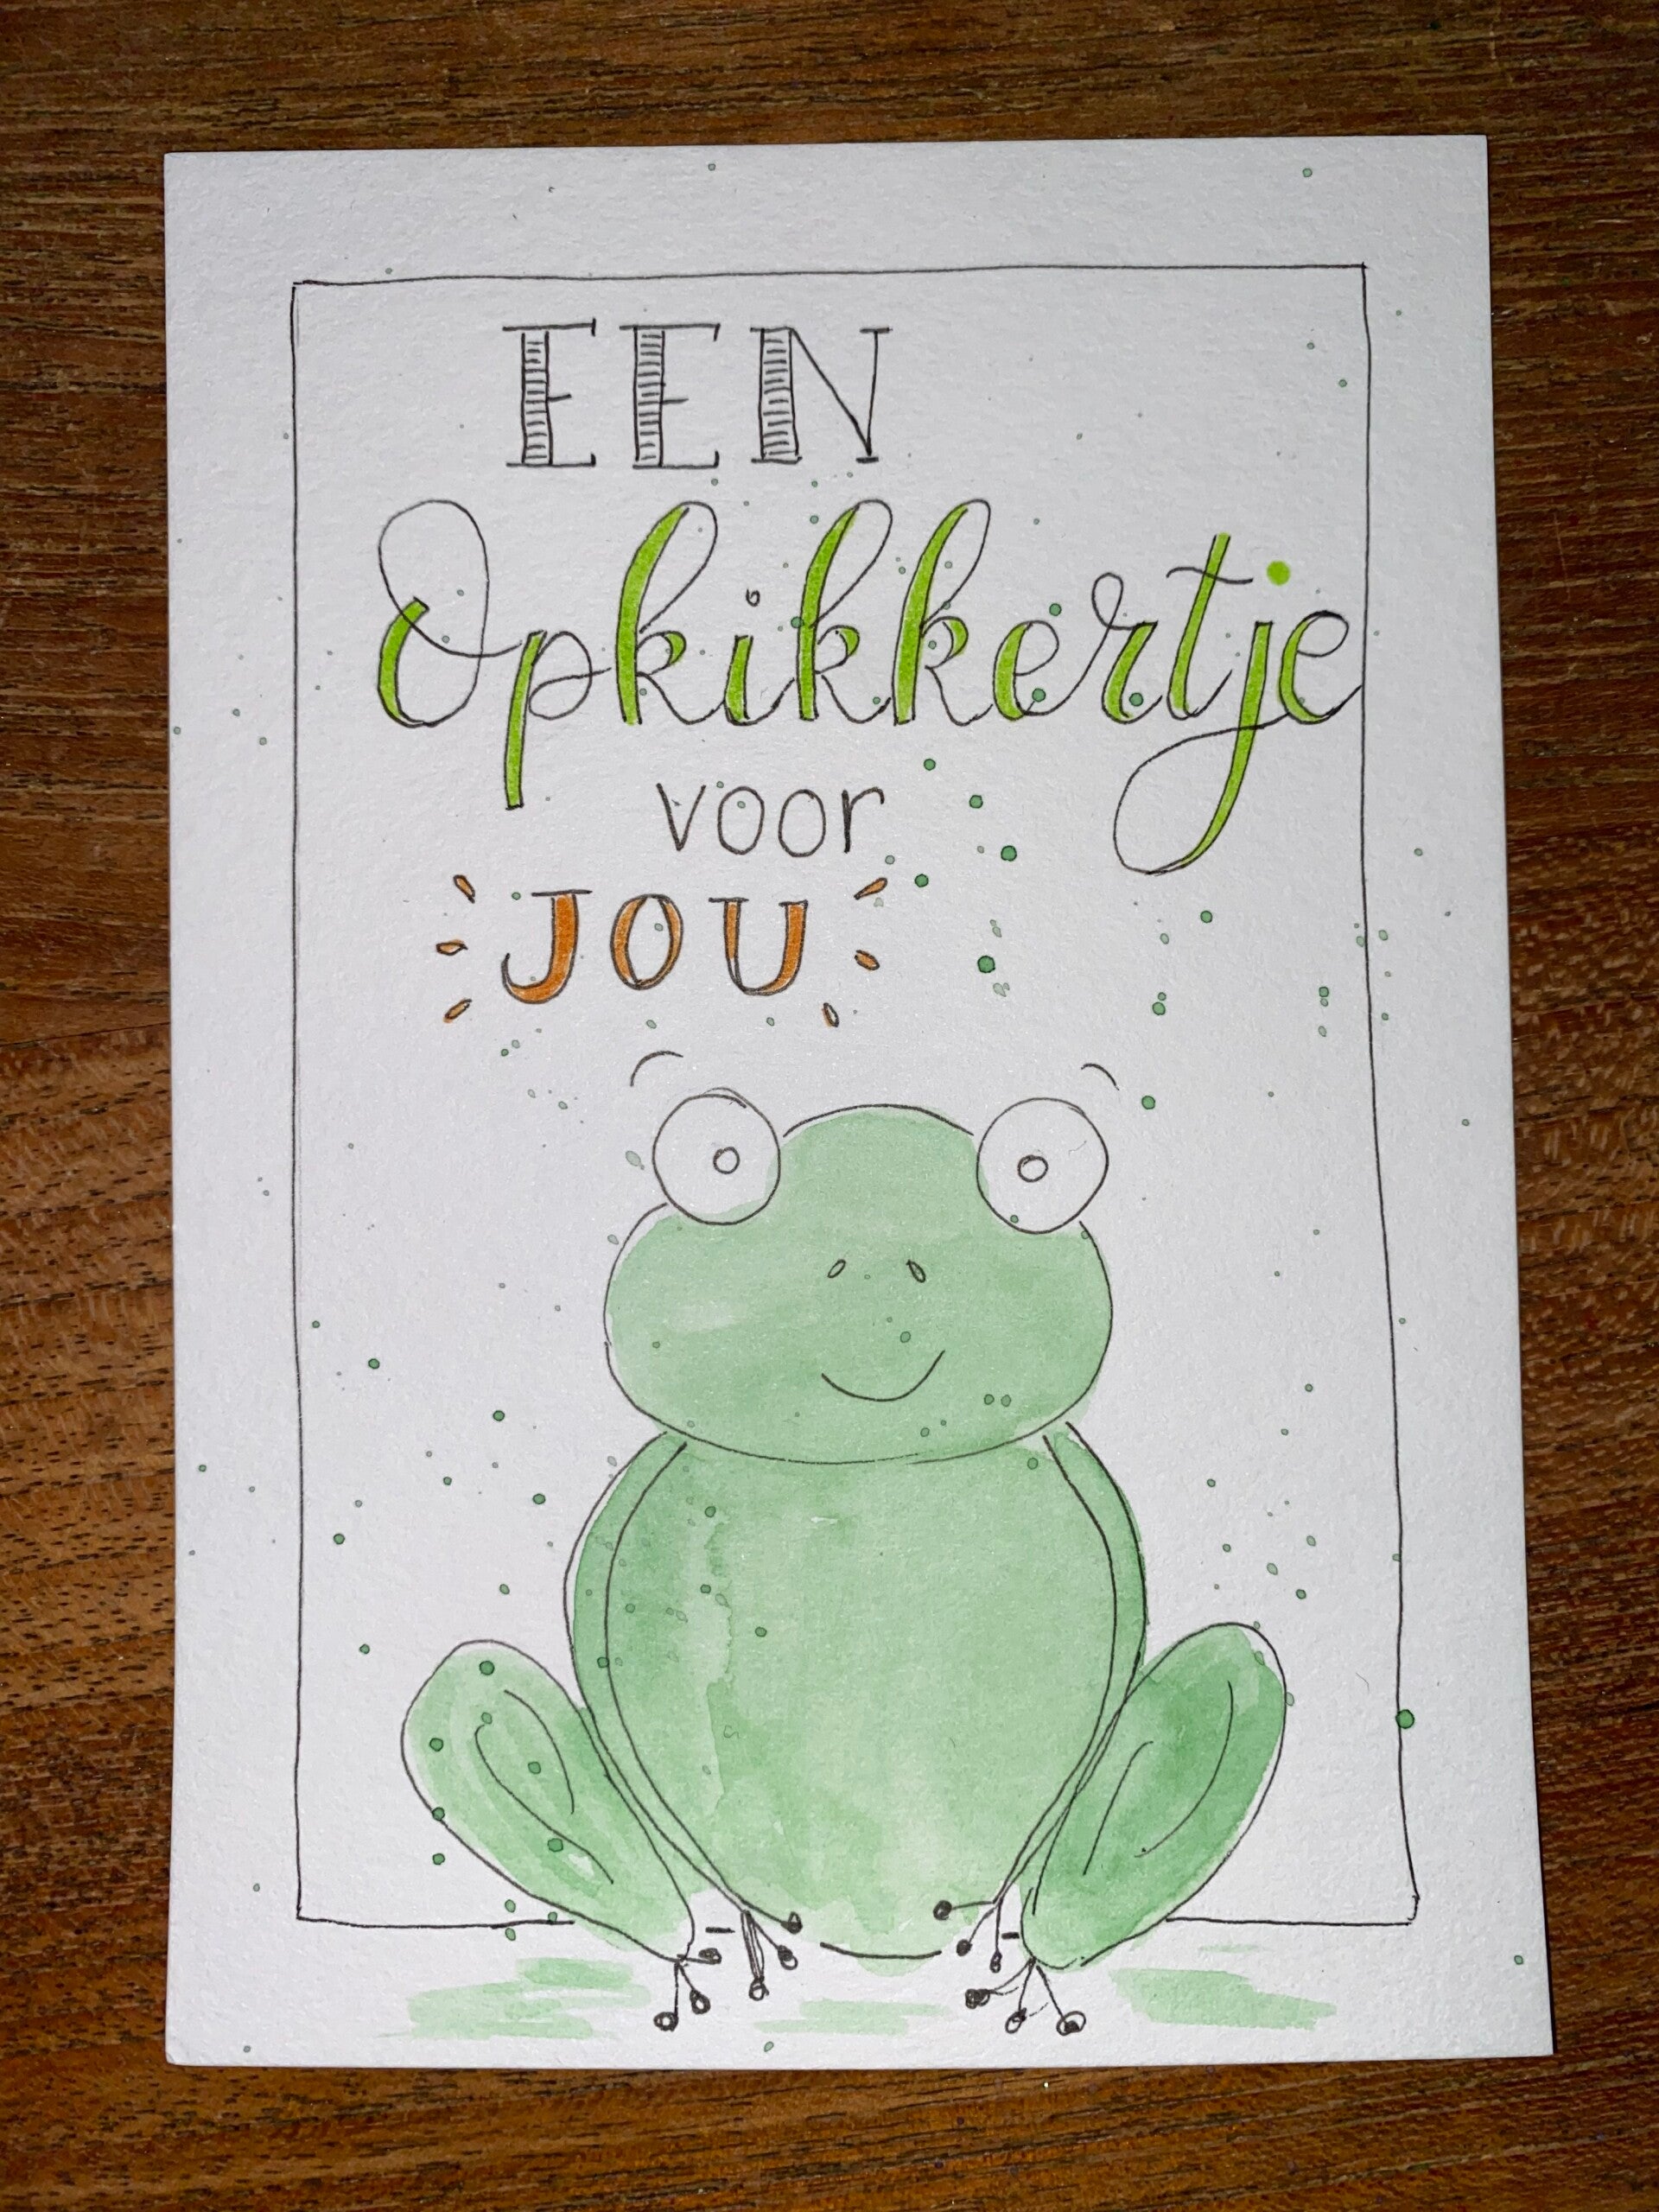 EEN
Opkikkertje
voor
JOU